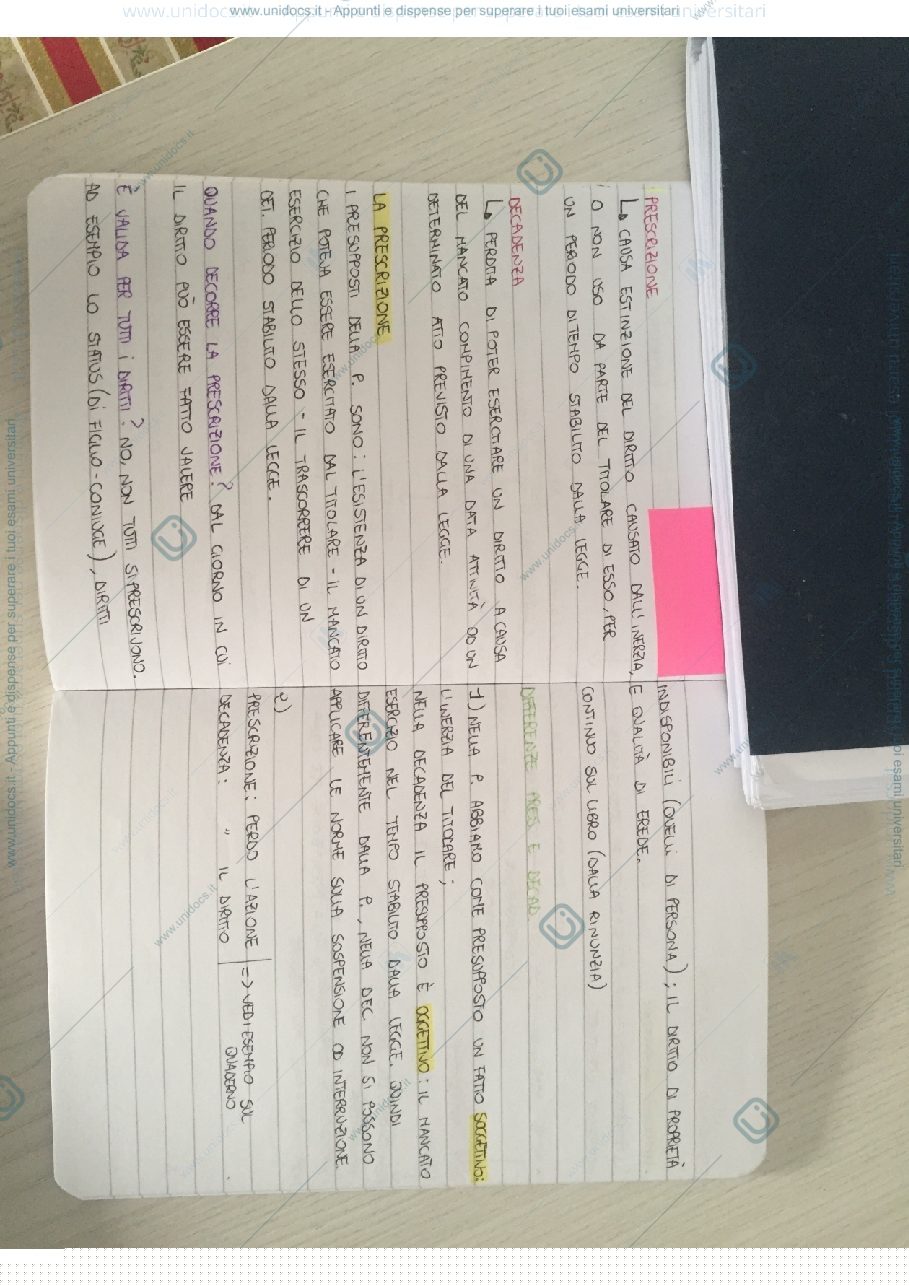 www.unidocs.it - Appunti e dispense per superare i tuoi esami universitari
PRESCRIZIONE
↳ CAUSA ESTINZIONE DEL DIRITTO CAUSATO DALL'INERZIA,
O NON USO DA PARTE DEL TITOLARE DI ESSO, PER
UN PERIODO DI TEMPO STABILITO DALLA LEGGE.
DECADENZA
↳ PERDITA DI POTER ESERCITARE UN DIRITTO A CAUSA
DEL MANCATO COMPIMENTO DI UNA DATA ATTIVITÀ OD UN
DETERMINATO ATTO PREVISTO DALLA LEGGE.
LA PRESCRIZIONE
I PRESUPPOSTI DELLA P. SONO: L'ESISTENZA DI UN DIRITTO
CHE POTEVA ESSERE ESERCITATO DAL TITOLARE - IL MANCATO
ESERCIZIO DELLO STESSO - IL TRASCORRERE DI UN
DET. PERIODO STABILITO DALLA LEGGE.
QUANDO DECORRE LA PRESCRIZIONE? DAL GIORNO IN CUI
IL DIRITTO PUÒ ESSERE FATTO VALERE
È VALIDA PER TUTTI I DIRITTI? NO, NON TUTTI SI PRESCRIVONO.
AD ESEMPIO LO STATUS (DI FIGLIO - CONIUGE), DIRITTI
INDISPONIBILI (QUELLI DI PERSONA); IL DIRITTO DI PROPRIETÀ
E QUALITÀ DI EREDE.
CONTINUO SUL LIBRO (DALLA RINUNZIA)
DIFFERENZE PRES E DECAD
1) NELLA P. ABBIAMO COME PRESUPPOSTO UN FATTO SOGGETTIVO:
L'INERZIA DEL TITOLARE;
NELLA DECADENZA IL PRESUPPOSTO È OGGETTIVO: IL MANCATO
ESERCIZIO NEL TEMPO STABILITO DALLA LEGGE. QUINDI
DIFFERENTEMENTE DALLA P., NELLA DEC. NON SI POSSONO
APPLICARE LE NORME SULLA SOSPENSIONE OD INTERRUZIONE.
2)
PRESCRIZIONE: PERDO L'AZIONE | => VEDI ESEMPIO SUL
DECADENZA: " IL DIRITTO | QUADERNO
www.unidocs.it - Appunti e dispense per superare i tuoi esami universitari